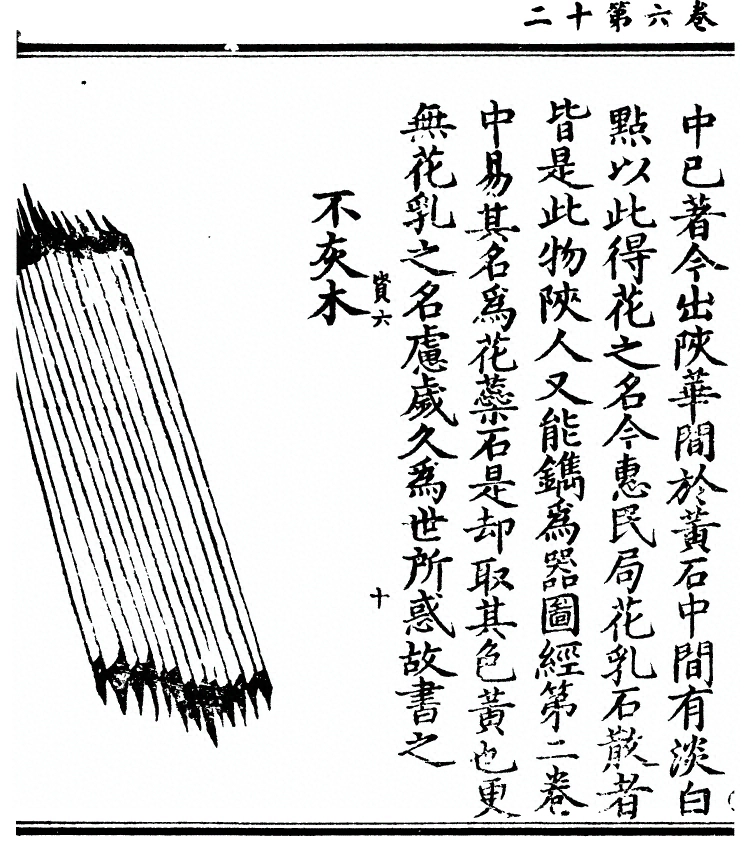 卷六第十二
中已著今出陝華間於黃石中間有淡白
點以此得花之名今惠民局花乳石散者
皆是此物陝人又能鐫爲器圖經第二卷
中易其名爲花蘂石是却取其色黃也更
無花乳之名慮歲久爲世所惑故書之
賁六
十
不灰木